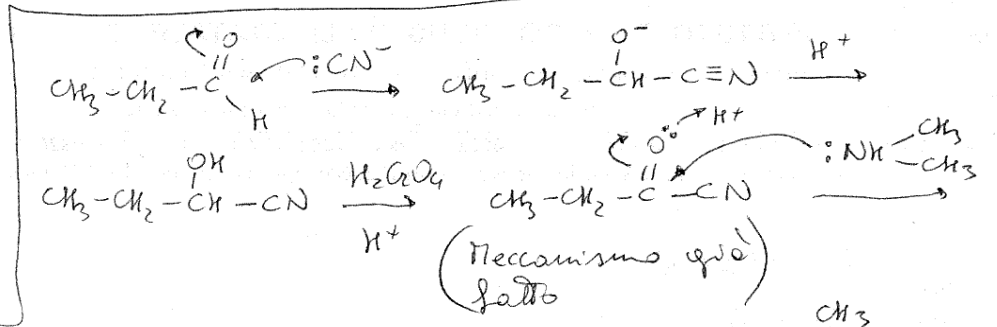 CH3-CH2-C(=O)-H :CN⁻ → CH3-CH2-CH(O⁻)-C≡N H⁺ →
CH3-CH2-CH(OH)-CN H2CrO4 H⁺ → CH3-CH2-C(=O:)-CN H+ :NH-CH3 -CH3 →
(Meccanismo già
fatto)
CH3